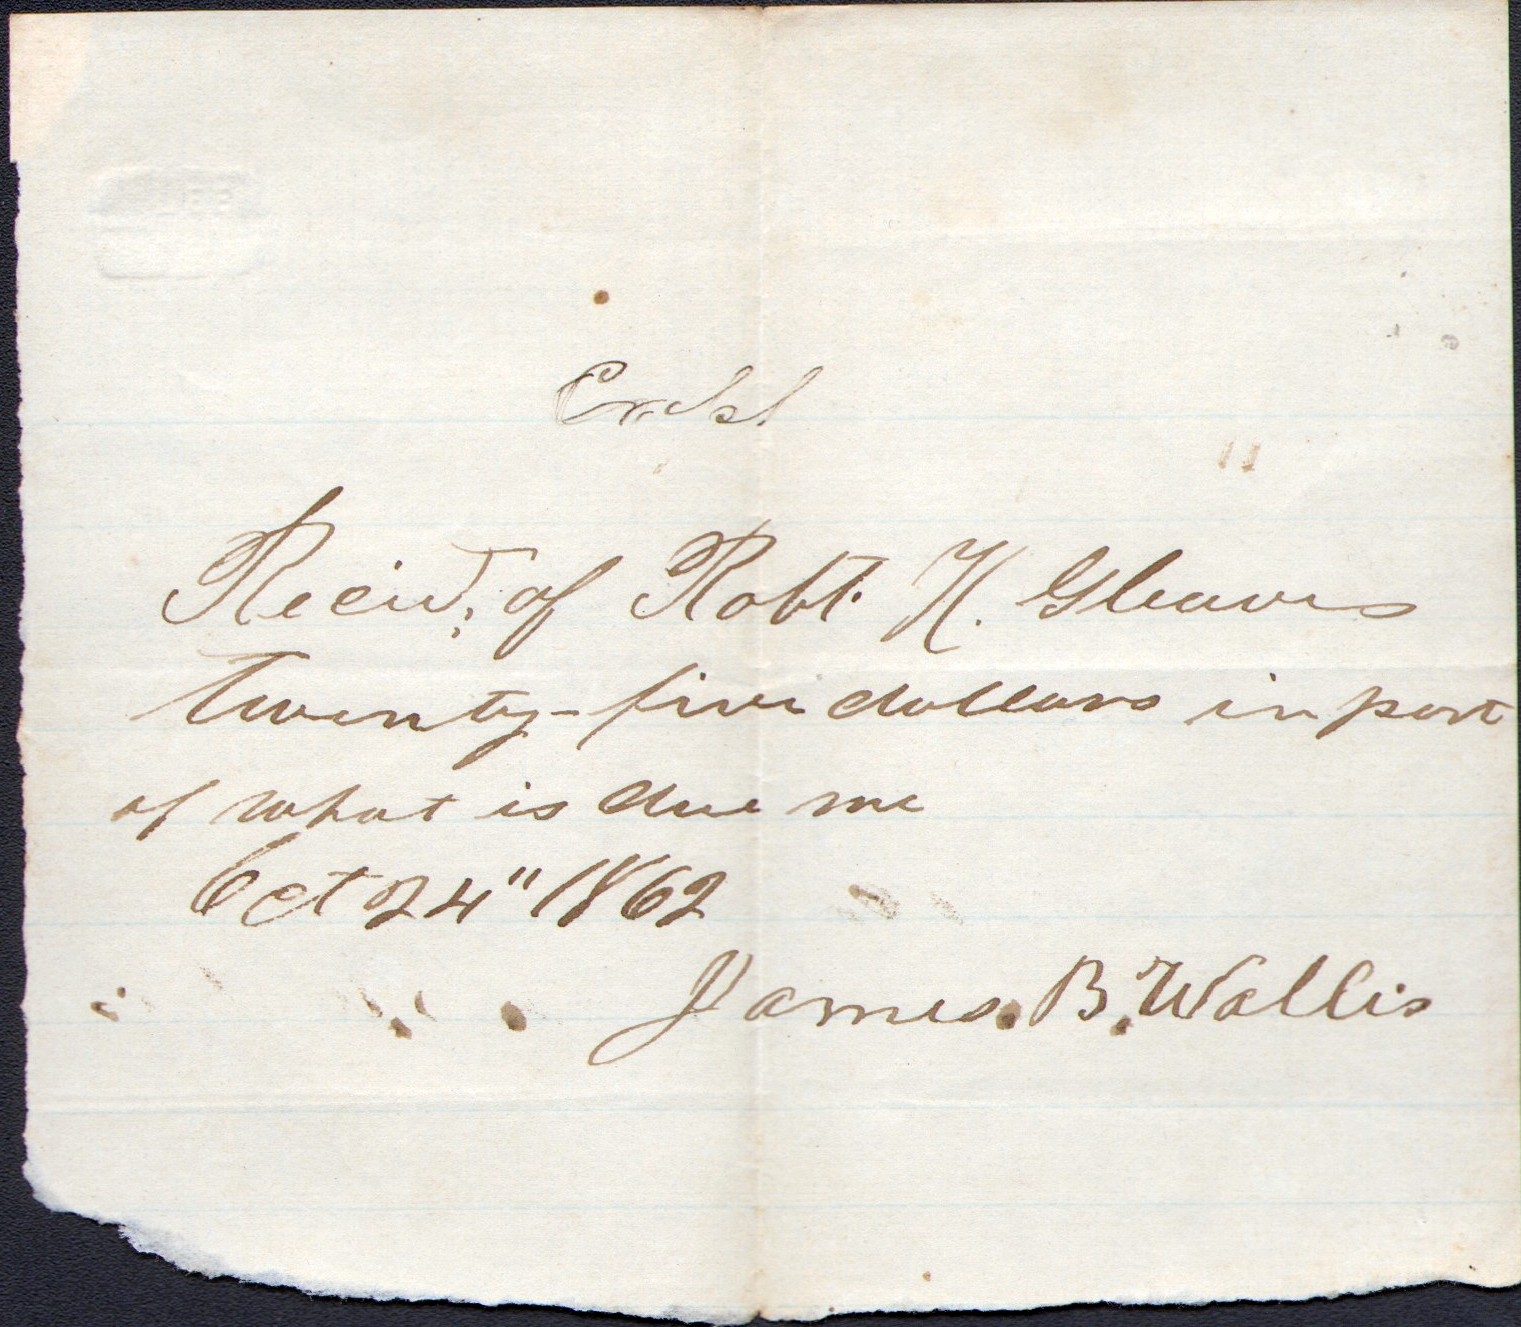 Recivd, of Robt. H. Gleaves
Twenty-five dollars in part
of what is due me
Oct 24" 1862
James. B. Wallis